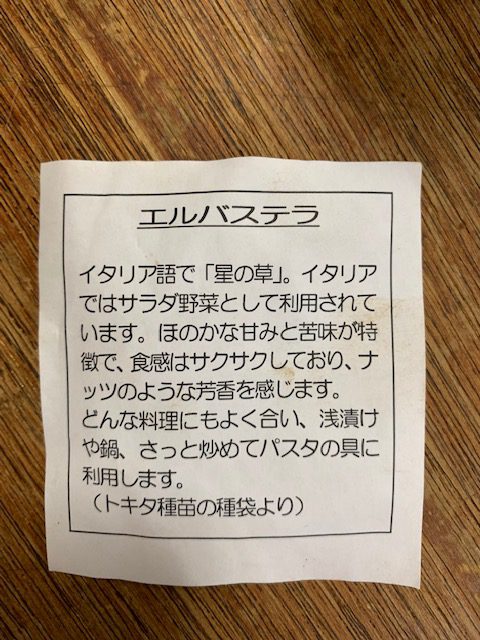 エルバステラ
イタリア語で「星の草」。イタリア
ではサラダ野菜として利用されて
います。ほのかな甘みと苦味が特
徴で、食感はサクサクしており、ナ
ッツのような芳香を感じます。
どんな料理にもよく合い、浅漬け
や鍋、さっと炒めてパスタの具に
利用します。
（トキタ種苗の種袋より）